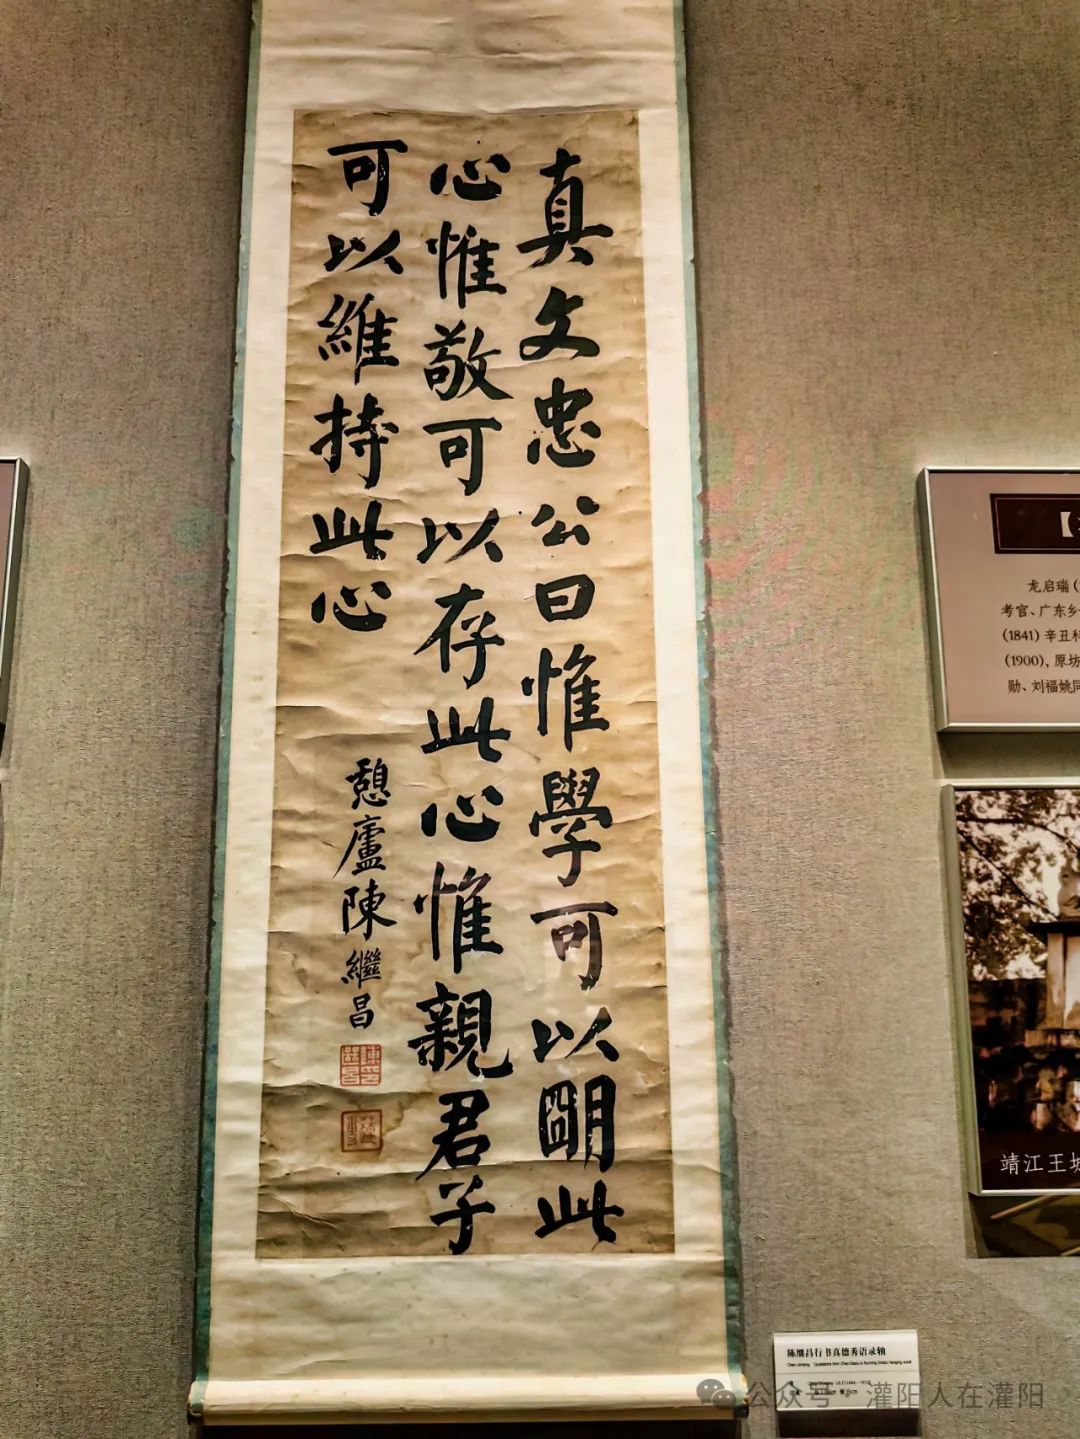 真文忠公曰惟學可以朙此
心惟敬可以存此心惟親君子
可以維持此心
憩廬陳繼昌
龙启瑞
考官、广东乡
(1841) 辛丑科
(1900), 原坊
勋、刘福姚同
靖江王城
陈继昌行书真德秀语录轴
公众号 灌阳人在灌阳